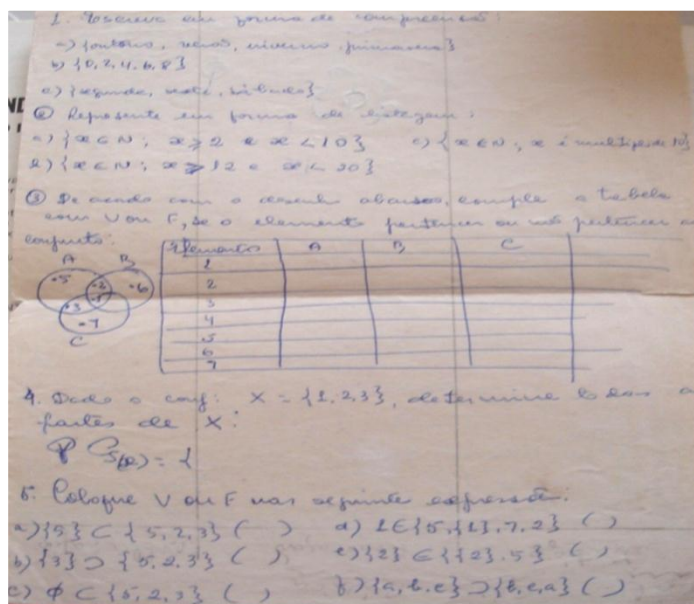 1. Escreva em forma de compreensão:
a) {outono, verão, inverno, primavera}
b) {0, 2, 4, 6, 8}
c) {segunda, sexta, sábado}
② Represente em forma de listagem:
a) {x ∈ N; x ⩾ 2 e x < 10} c) {x ∈ N; x é multiplo de 10}
b) {x ∈ N; x ⩾ 12 e x < 20}
③ De acordo com o desenho abaixo, comple a tabela
com V ou F, se o elemento pertencer ou não pertencer a
conjunto:
Elementos A B C
1
2
3
4
5
6
7
A B
.5 .2 .6
.3 .1
.7
C
4. Dado o conj: X = {1, 2, 3}, determine todas a
partes de X:
5. Coloque V ou F nas seguinte expressõe:
a) {5} ⊂ {5, 2, 3} ( ) d) 1 ∈ {5, {1}, 7, 2} ( )
b) {3} ⊃ {5, 2, 3} ( ) e) {2} ∈ {{2}, 5} ( )
c) ϕ ⊂ {5, 2, 3} ( ) f) {a, b, c} ⊃ {b, c, a} ( )